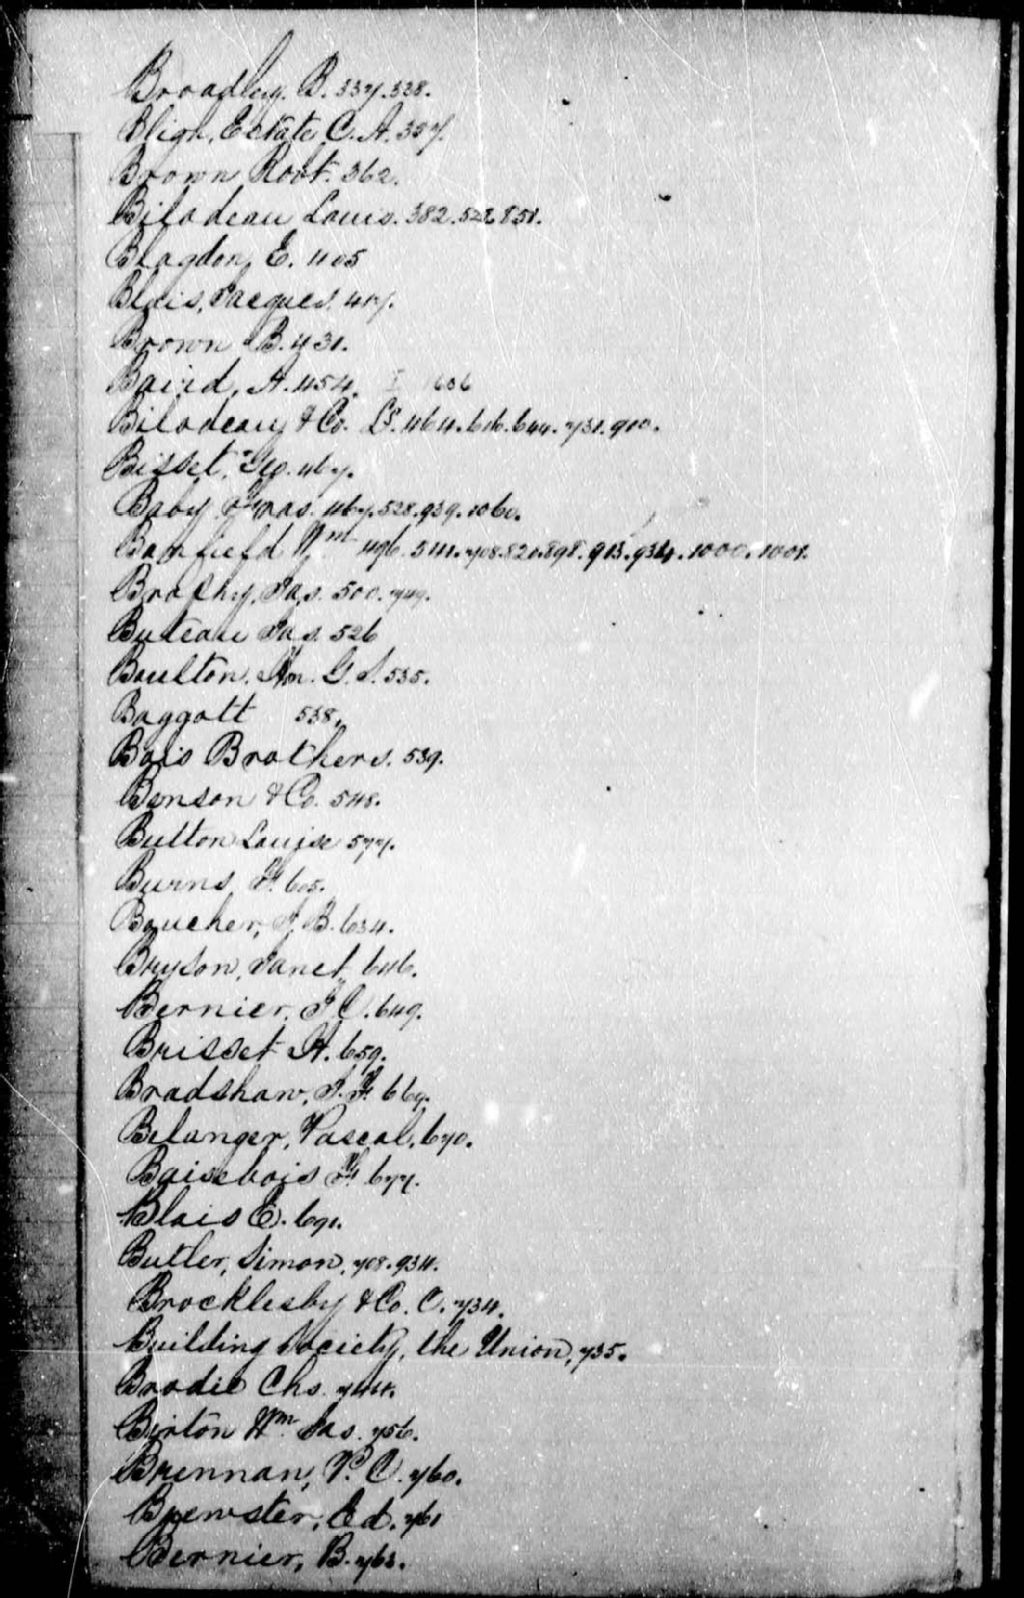 Broadley. B. 337.338.
Bligh, Estate, C. A. 357.
Brown Robt. 362.
Bilodeau Louis. 382. 528. 851.
Blagdon, E. 405
Blais, Jacques. 417.
Brown B. 431.
Baird, A. 454. 1606
Bilodeau & Co. Ls. 464. 616. 644. 731. 910.
Bisset, Geo. 467.
Baby Fras. 467. 528. 939. 1060.
Banfield Wm 496. 541. 708. 820. 898. 913. 934. 1000. 1001.
Brophy, Jas. 500. 749.
Buteau Jas. 526
Boulton. Hon. G. S. 535.
Baggott 538.
Bois Brothers. 539.
Benson & Co. 548.
Button Louise 577.
Burns, F. 605.
Boucher, J. B. 634.
Bryson, Janet, 646.
Bernier, J. C. 649.
Brisset H. 659.
Bradshaw, J. F. 669.
Belanger, Pascal, 670.
Boisebois F. 677.
Blais E. 691.
Butler, Simon, 708. 934.
Brocklesby & Co. C. 734.
Building Society, the Union, 735.
Brodie Chs. 744.
Birton Wm Jas. 756.
Brennan, P. C. 760.
Brewster, Ed. 761
Bernier, B. 763.